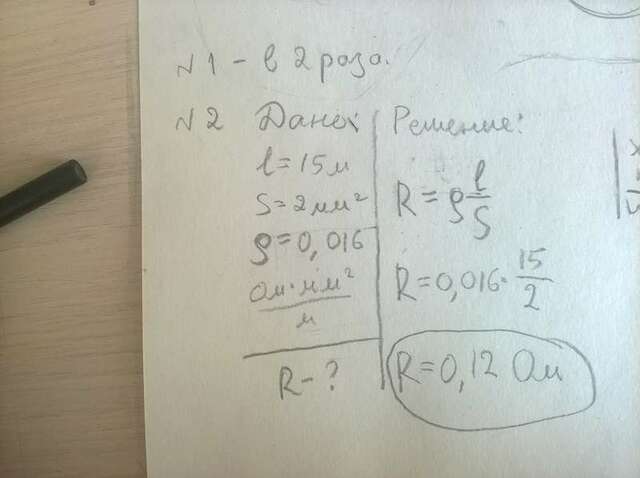 N1 - в 2 раза.
N2 Дано:
l = 15 м
S = 2 мм²
ρ = 0,016
Ом·мм²
м
R - ?
Решение:
R = ρ l/S
R = 0,016 · 15/2
R = 0,12 Ом